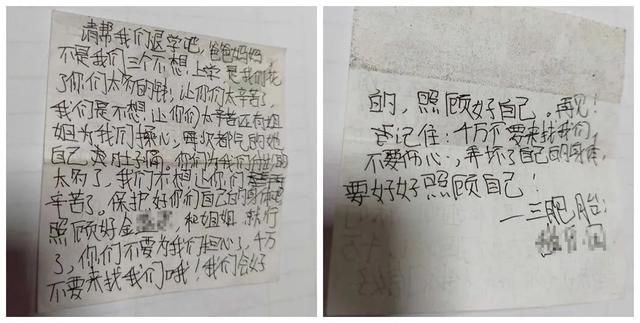 请帮我们退学吧，爸爸妈妈
不是我们三个不想上学，是我们花
了你们太多的钱，让你们太辛苦了，
我们是不想让你们太辛苦还有姐
姐为我们操心，每次都气的她
自己 肚子痛，你们为我们付出的
太多了，我们不想让你们
辛苦了。保护好你们自己的身体
照顾好金 ，和姐姐
了，你们不要为我们担心了，千万
不要来找我们哦！我们会好
的，照顾好自己。再见！
记住：千万不要来找我们，
不要伤心，弄坏了自己的身体，
要好好照顾自己！
—三肥胎：